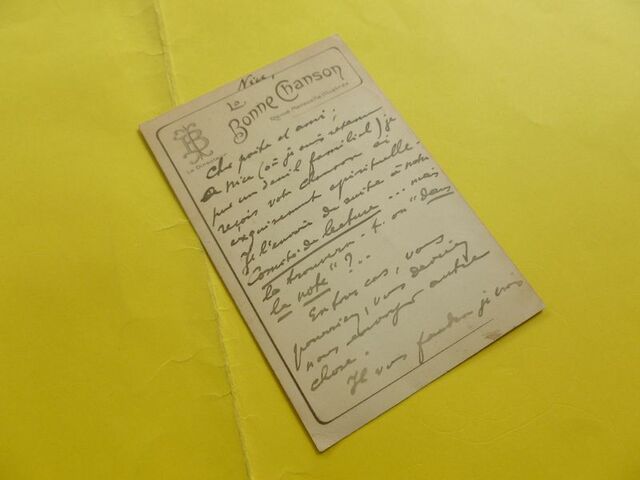 Nice,
La
Bonne Chanson
Revue Mensuelle Illustrée
TB
Le Directeur
Cher poète et ami,
De Nice (où je suis retenu
par un deuil familial) je
reçois votre chanson si
exquisement spirituelle.
Je l'envoie de suite à notre
Comité de lecture ... mais
la trouvera-t-on "dans
la note" ? ...
En tous cas, vous
pourriez, vous devriez
nous envoyer autre
chose.
Il vous faudra je crois